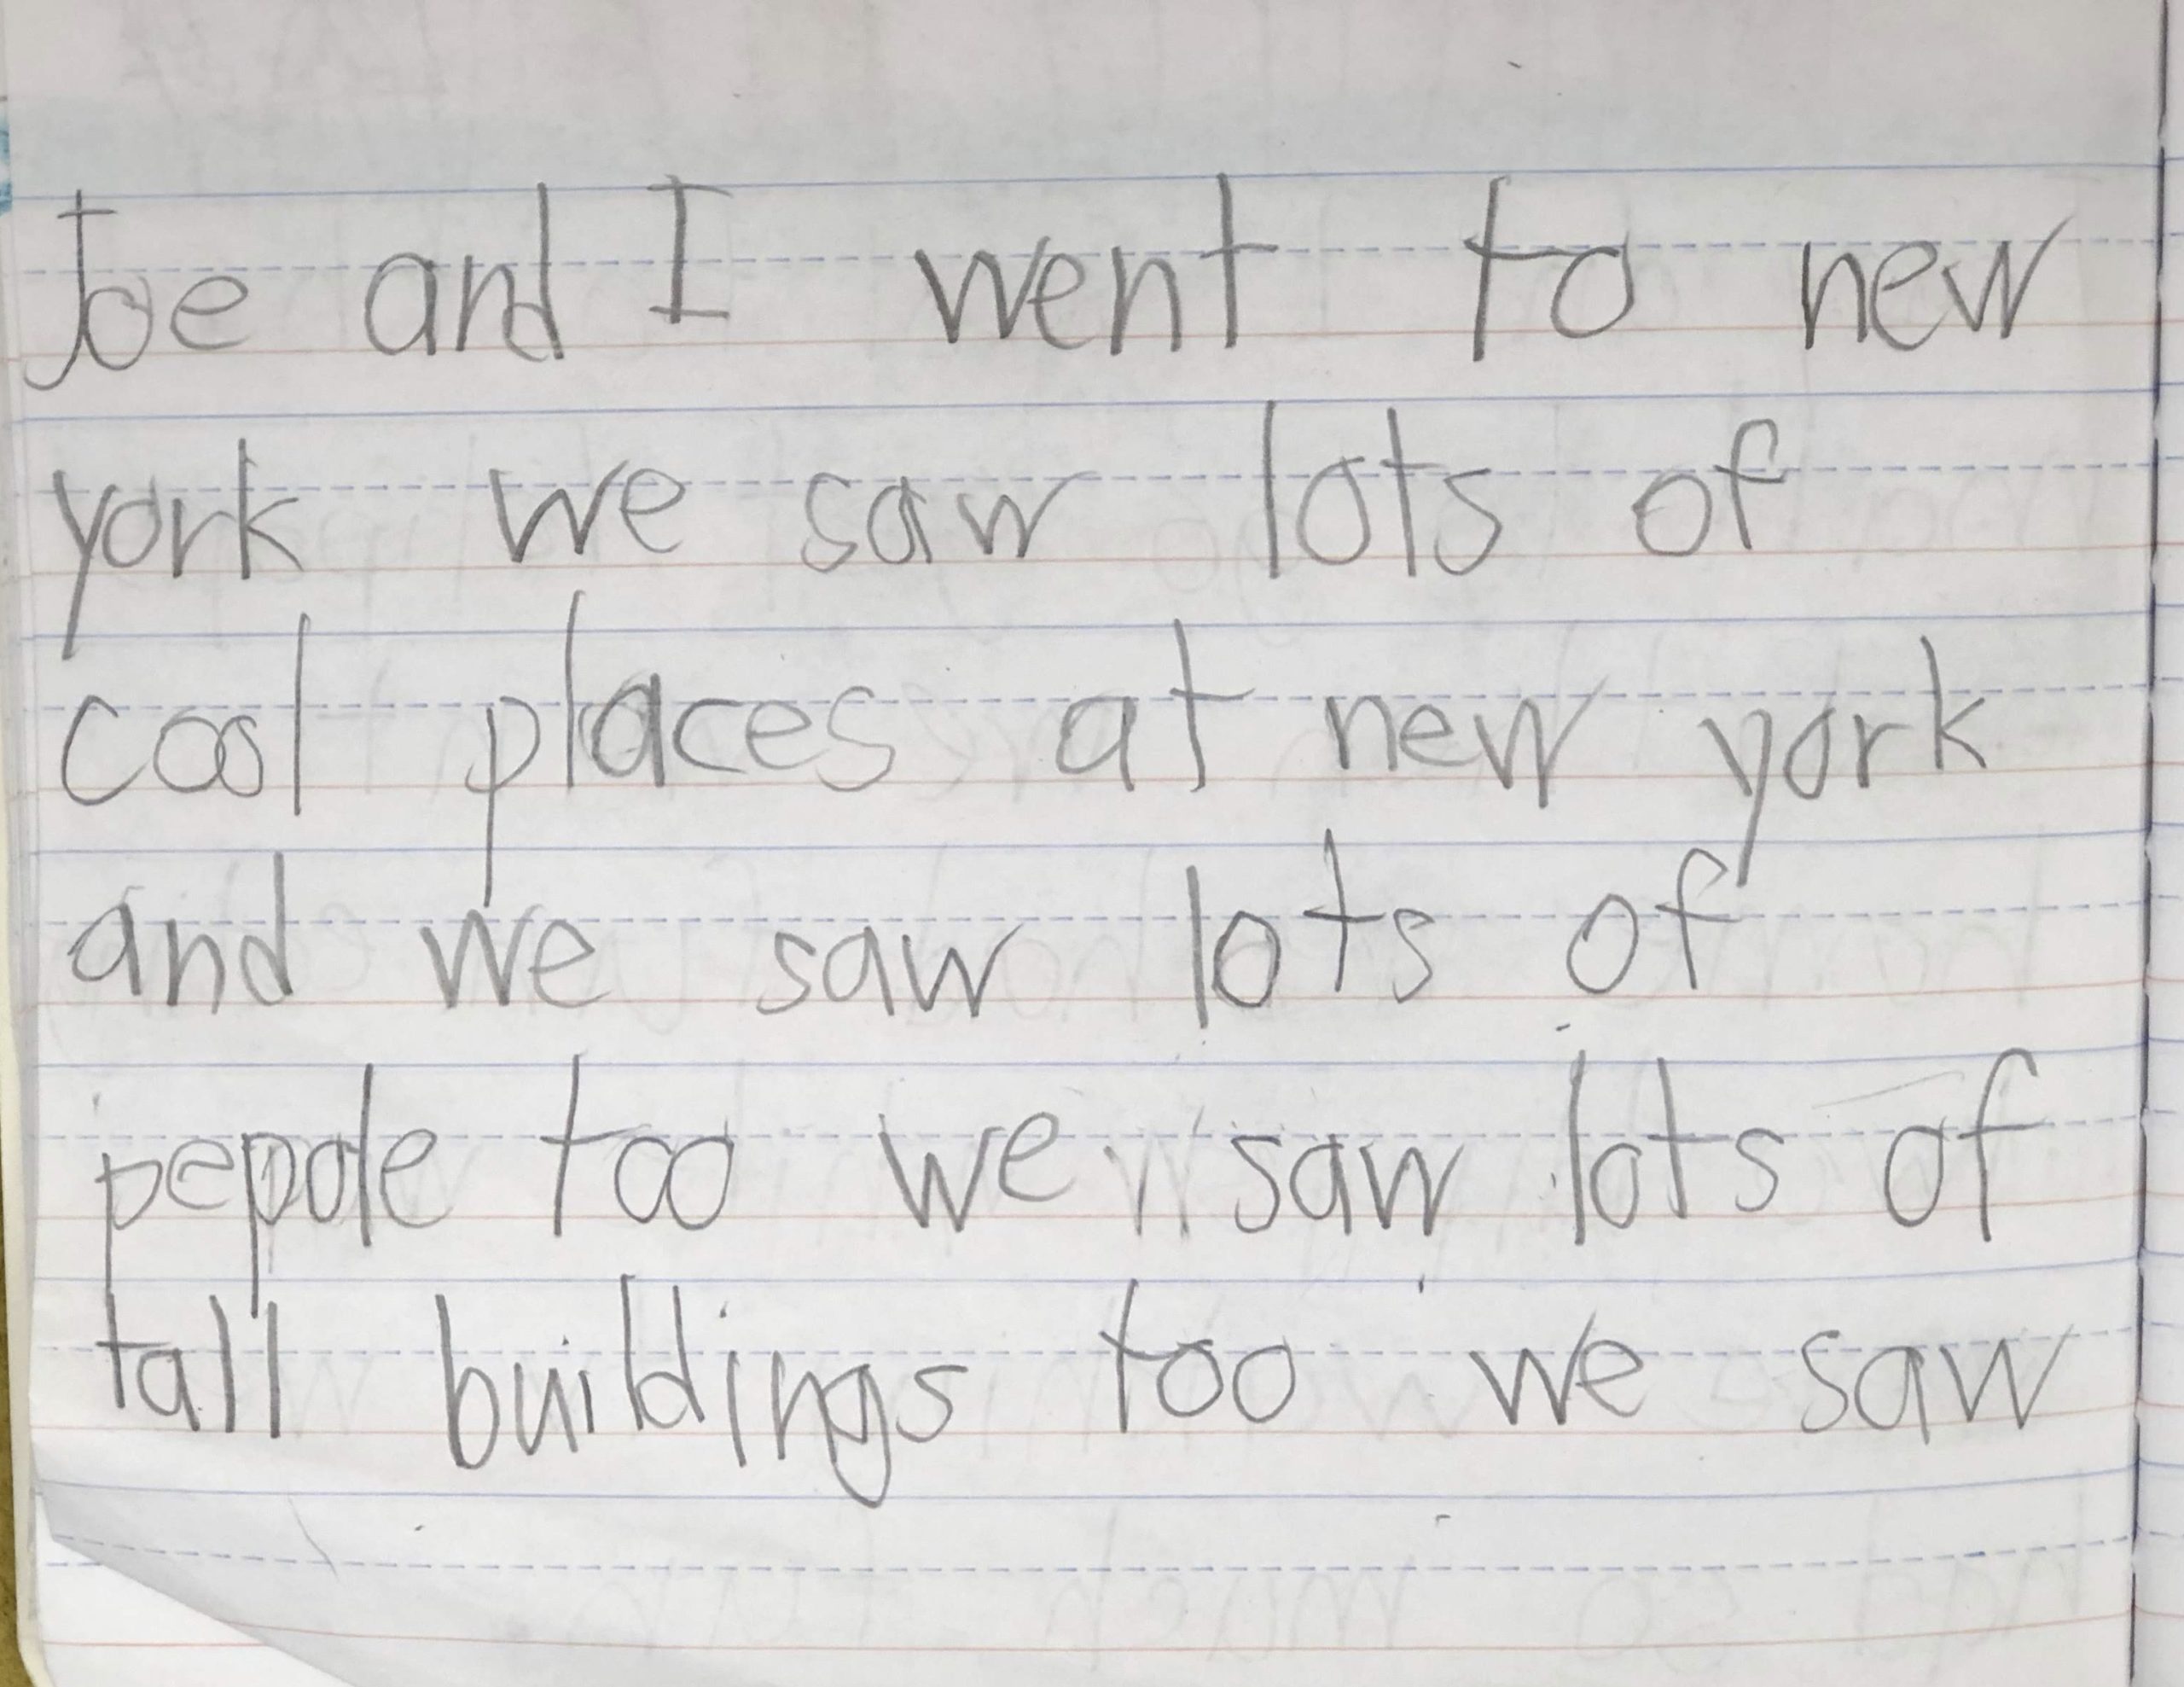 Joe and I went to new
york we saw lots of
cool places at new york
and we saw lots of
pepole too we saw lots of
tall buildings too we saw